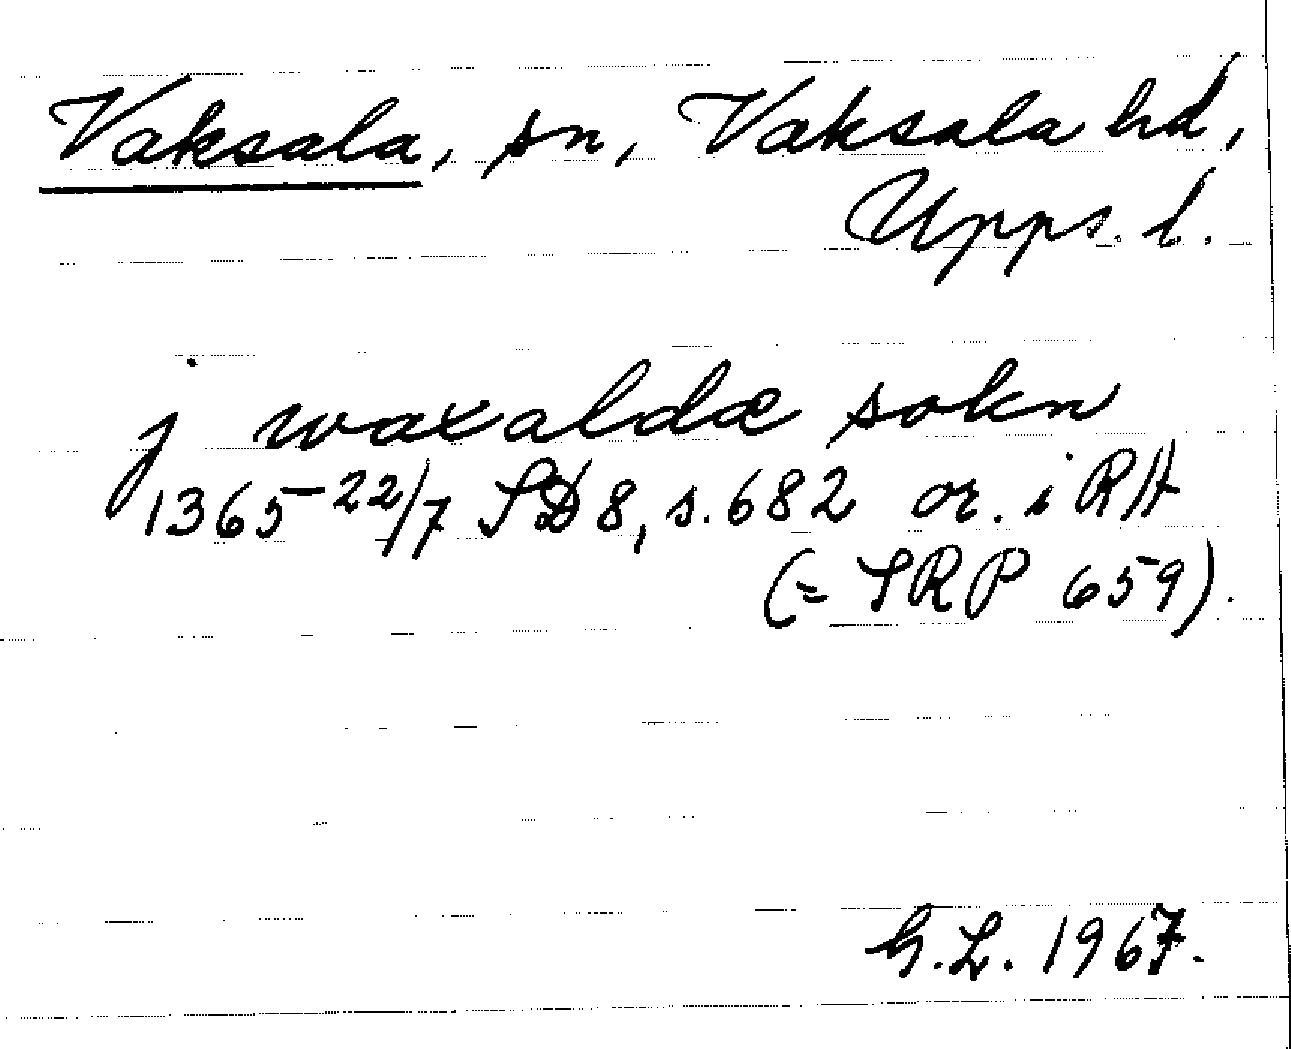 Vaksala, sn, Vaksala hd,
Upps. l.
j waxaldæ sokn
1365 22/7 SD 8, s. 682 or. i RA
(= SRP 659).
G.L. 1967.